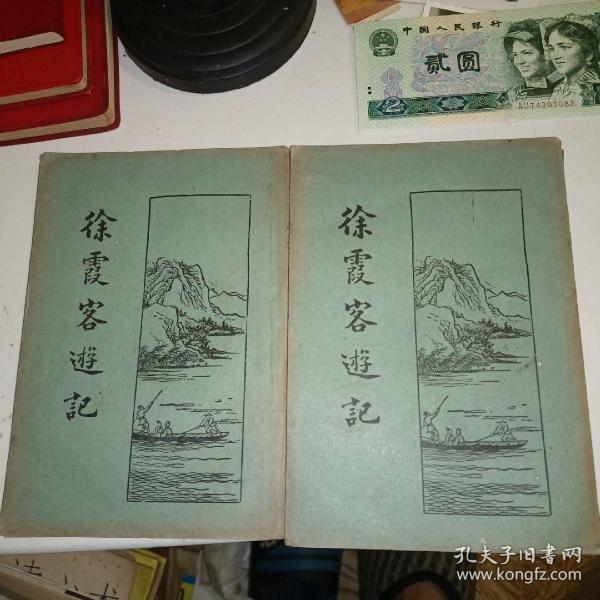 中国人民银行
贰圆
2
AU74303082
徐霞客遊記
徐霞客遊記
孔夫子旧书网
www.kongfz.com